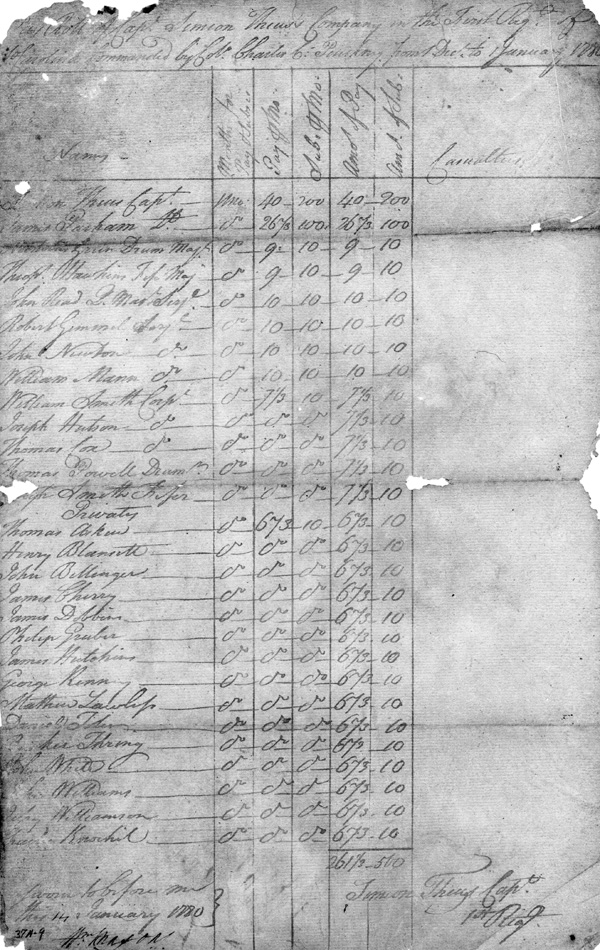 Pay Roll of Capt. Simeon Theus's Company in the First Regt. of
So. Carolina Commanded by Col. Charles C. Pinckney from Decr. to 1 January 1780
Names Months for Pay & Subsce. Pay pr. Mo. Sub. pr. Mo. Amt. of Pay Amt. of Sub. Casualties
Simeon Theus Capt. 1 Mo. 40 200 40 200
James Parham Lt. do 26 2/3 100 26 2/3 100
Green Drum Majr. do 9 10 9 10
Thos. Hawkins Fife Maj do 9 10 9 10
John Read Q. Mast. Serjt. do 10 10 10 10
Robert Gimmel Serjt. do 10 10 10 10
John Newton do. do 10 10 10 10
William Mann do. do 10 10 10 10
William Smith Corpl. do 7 1/3 10 7 1/3 10
Joseph Hutson do do do do 7 1/3 10
Thomas Cox do do do do 7 1/3 10
Thomas Powell Drumr. do do do 7 1/3 10
Smith Fifer do do do 7 1/3 10
Privates
Thomas Aken do 6 2/3 10 6 2/3 10
Henry Blansett do do do 6 2/3 10
John Bellinger do do do 6 2/3 10
James Cherry do do do 6 2/3 10
James Dobbins do do do 6 2/3 10
Philip Gruber do do do 6 2/3 10
James Hutchins do do do 6 2/3 10
George Kenney do do do 6 2/3 10
Mathew Lawless do do do 6 2/3 10
do do do 6 2/3 10
Thring do do do 6 2/3 10
John White do do do 6 2/3 10
Williams do do do 6 2/3 10
Williamson do do do 6 2/3 10
Knockil do do do 6 2/3 10
261 1/2 560
Sworn to before me
this 14 January 1780
Simeon Theus Capt.
1st Regt.
37A-9